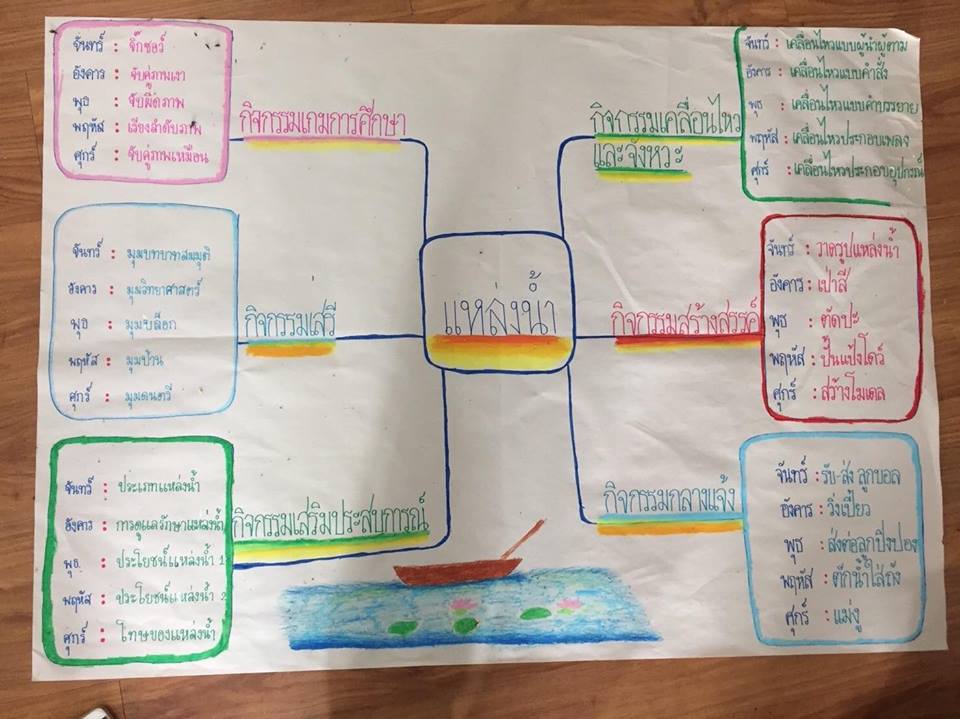 แหล่งน้ำ
กิจกรรมเกมการศึกษา
จันทร์ : จิ๊กซอว์
อังคาร : จับคู่ภาพเงา
พุธ : จับผิดภาพ
พฤหัส : เรียงลำดับภาพ
ศุกร์ : จับคู่ภาพเหมือน
กิจกรรมเสรี
จันทร์ : มุมบทบาทสมมุติ
อังคาร : มุมวิทยาศาสตร์
พุธ : มุมบล็อก
พฤหัส : มุมบ้าน
ศุกร์ : มุมดนตรี
กิจกรรมเสริมประสบการณ์
จันทร์ : ประเภทแหล่งน้ำ
อังคาร : การดูแลรักษาแหล่งน้ำ
พุธ : ประโยชน์แหล่งน้ำ 1
พฤหัส : ประโยชน์แหล่งน้ำ 2
ศุกร์ : โทษของแหล่งน้ำ
กิจกรรมเคลื่อนไหว
และจังหวะ
จันทร์ : เคลื่อนไหวแบบผู้นำผู้ตาม
อังคาร : เคลื่อนไหวแบบคำสั่ง
พุธ : เคลื่อนไหวแบบคำบรรยาย
พฤหัส : เคลื่อนไหวประกอบเพลง
ศุกร์ : เคลื่อนไหวประกอบอุปกรณ์
กิจกรรมสร้างสรรค์
จันทร์ : วาดรูปแหล่งน้ำ
อังคาร : เป่าสี
พุธ : ตัดปะ
พฤหัส : ปั้นแป้งโดว์
ศุกร์ : สร้างโมเดล
กิจกรรมกลางแจ้ง
จันทร์ : รับ-ส่ง ลูกบอล
อังคาร : วิ่งเปี้ยว
พุธ : ส่งต่อลูกปิงปอง
พฤหัส : ตักน้ำใส่ถัง
ศุกร์ : แม่งู